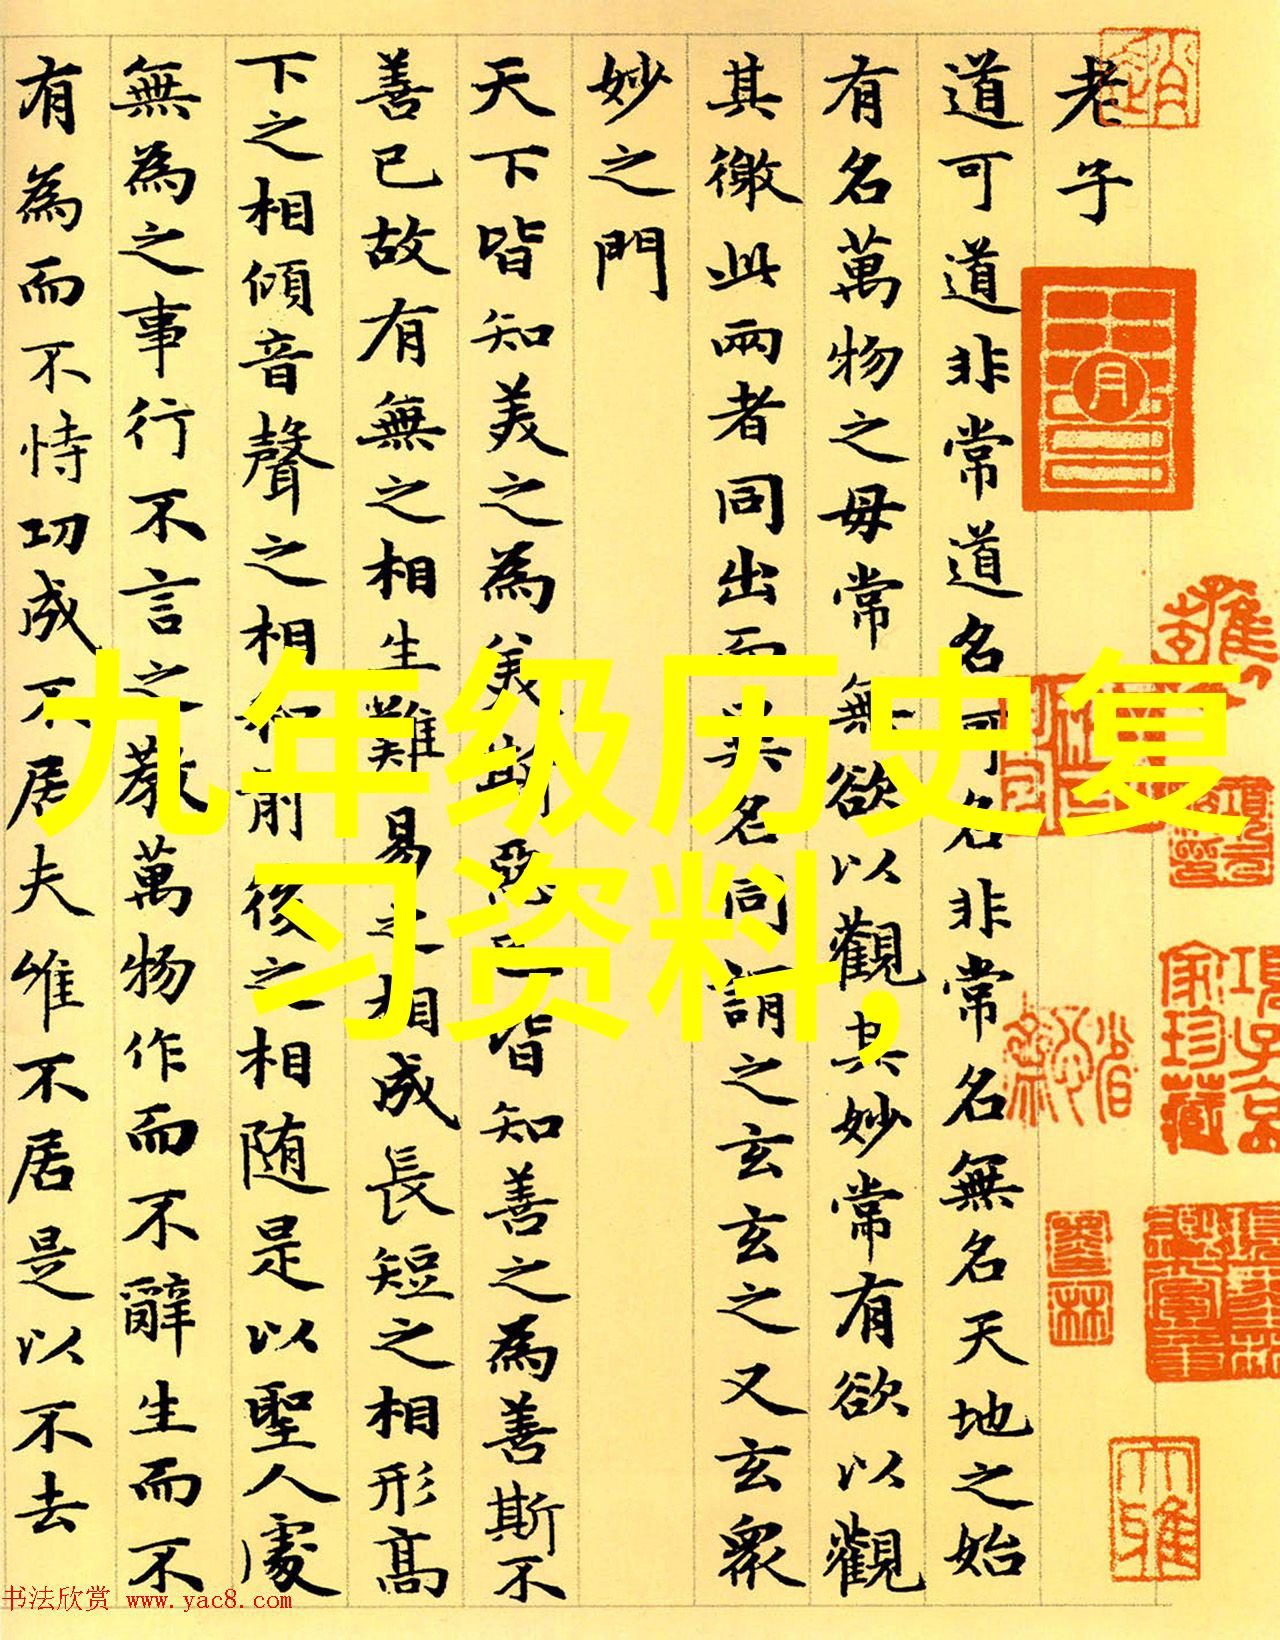 老子
道可道非常道名可名非常名無名天地之始
有名萬物之母常無欲以觀其妙常有欲以觀
其徼此兩者同出而異名同謂之玄玄之又玄衆
妙之門
天下皆知美之為美斯惡已皆知善之為善斯不
善已故有無之相生難易之相成長短之相形高
下之相傾音聲之相和前後之相随是以聖人處
無為之事行不言之教萬物作而不辭生而不
有為而不恃功成不居夫唯不居是以不去
九年级历史复
习资料,
书法欣赏 www.yac8.com